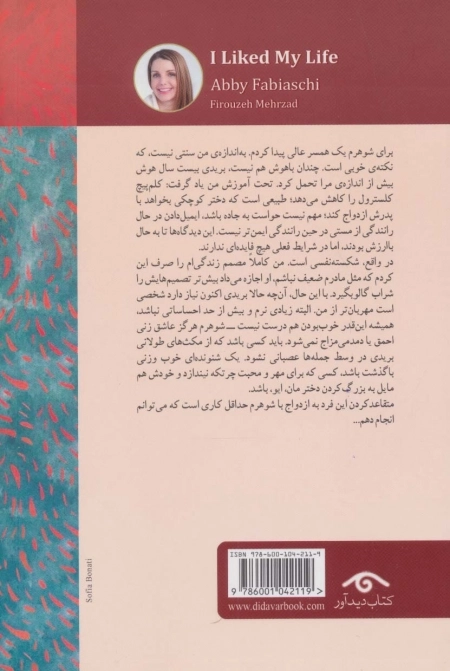 I Liked My Life
Abby Fabiaschi
Firouzeh Mehrzad
برای شوهرم یک همسر عالی پیدا کردم. به‌اندازه‌ی من سنتی نیست، که
نکته‌ی خوبی است. چندان باهوش هم نیست، بریدی بیست سال هوش
بیش از اندازه‌ی مرا تحمل کرد. تحت آموزش من یاد گرفت: کلم‌پیچ
کلسترول را کاهش می‌دهد؛ طبیعی است که دختر کوچکی بخواهد با
پدرش ازدواج کند؛ مهم نیست حواست به جاده باشد، ایمیل‌دادن در حال
رانندگی از مستی در حین رانندگی ایمن‌تر نیست. این دیدگاه‌ها تا به حال
باارزش بودند، اما در شرایط فعلی هیچ فایده‌ای ندارند.
در واقع، شکسته‌نفسی است. من کاملاً مصمم زندگی‌ام را صرف این
کردم که مثل مادرم ضعیف نباشم، او اجازه می‌داد بیش‌تر تصمیم‌هایش را
شراب گالو بگیرد. با این حال، آن‌چه حالا بریدی اکنون نیاز دارد شخصی
مهربان‌تر از من. البته زیادی نرم و بیش از حد احساساتی نباشد،
همیشه این‌قدر خوب‌بودن هم درست نیست ــ شوهرم هرگز عاشق زنی
احمق یا دمدمی‌مزاج نمی‌شود. باید کسی باشد که از مکث‌های طولانی
بریدی در وسط جمله‌ها عصبانی نشود. یک شنونده‌ای خوب وزنی
باگذشت باشد، کسی که برای مهر و محبت چرتکه نیندازد و خودش هم
مایل به بزرگ‌کردن دخترمان، ایو، باشد.
متقاعدکردن این فرد به ازدواج با شوهرم حداقل کاری است که می‌توانم
انجام دهم...
Sofia Bonati
ISBN 978-600-104-211-9
9 786001 042119 >
www.didavarbook.com
کتاب دیدآور